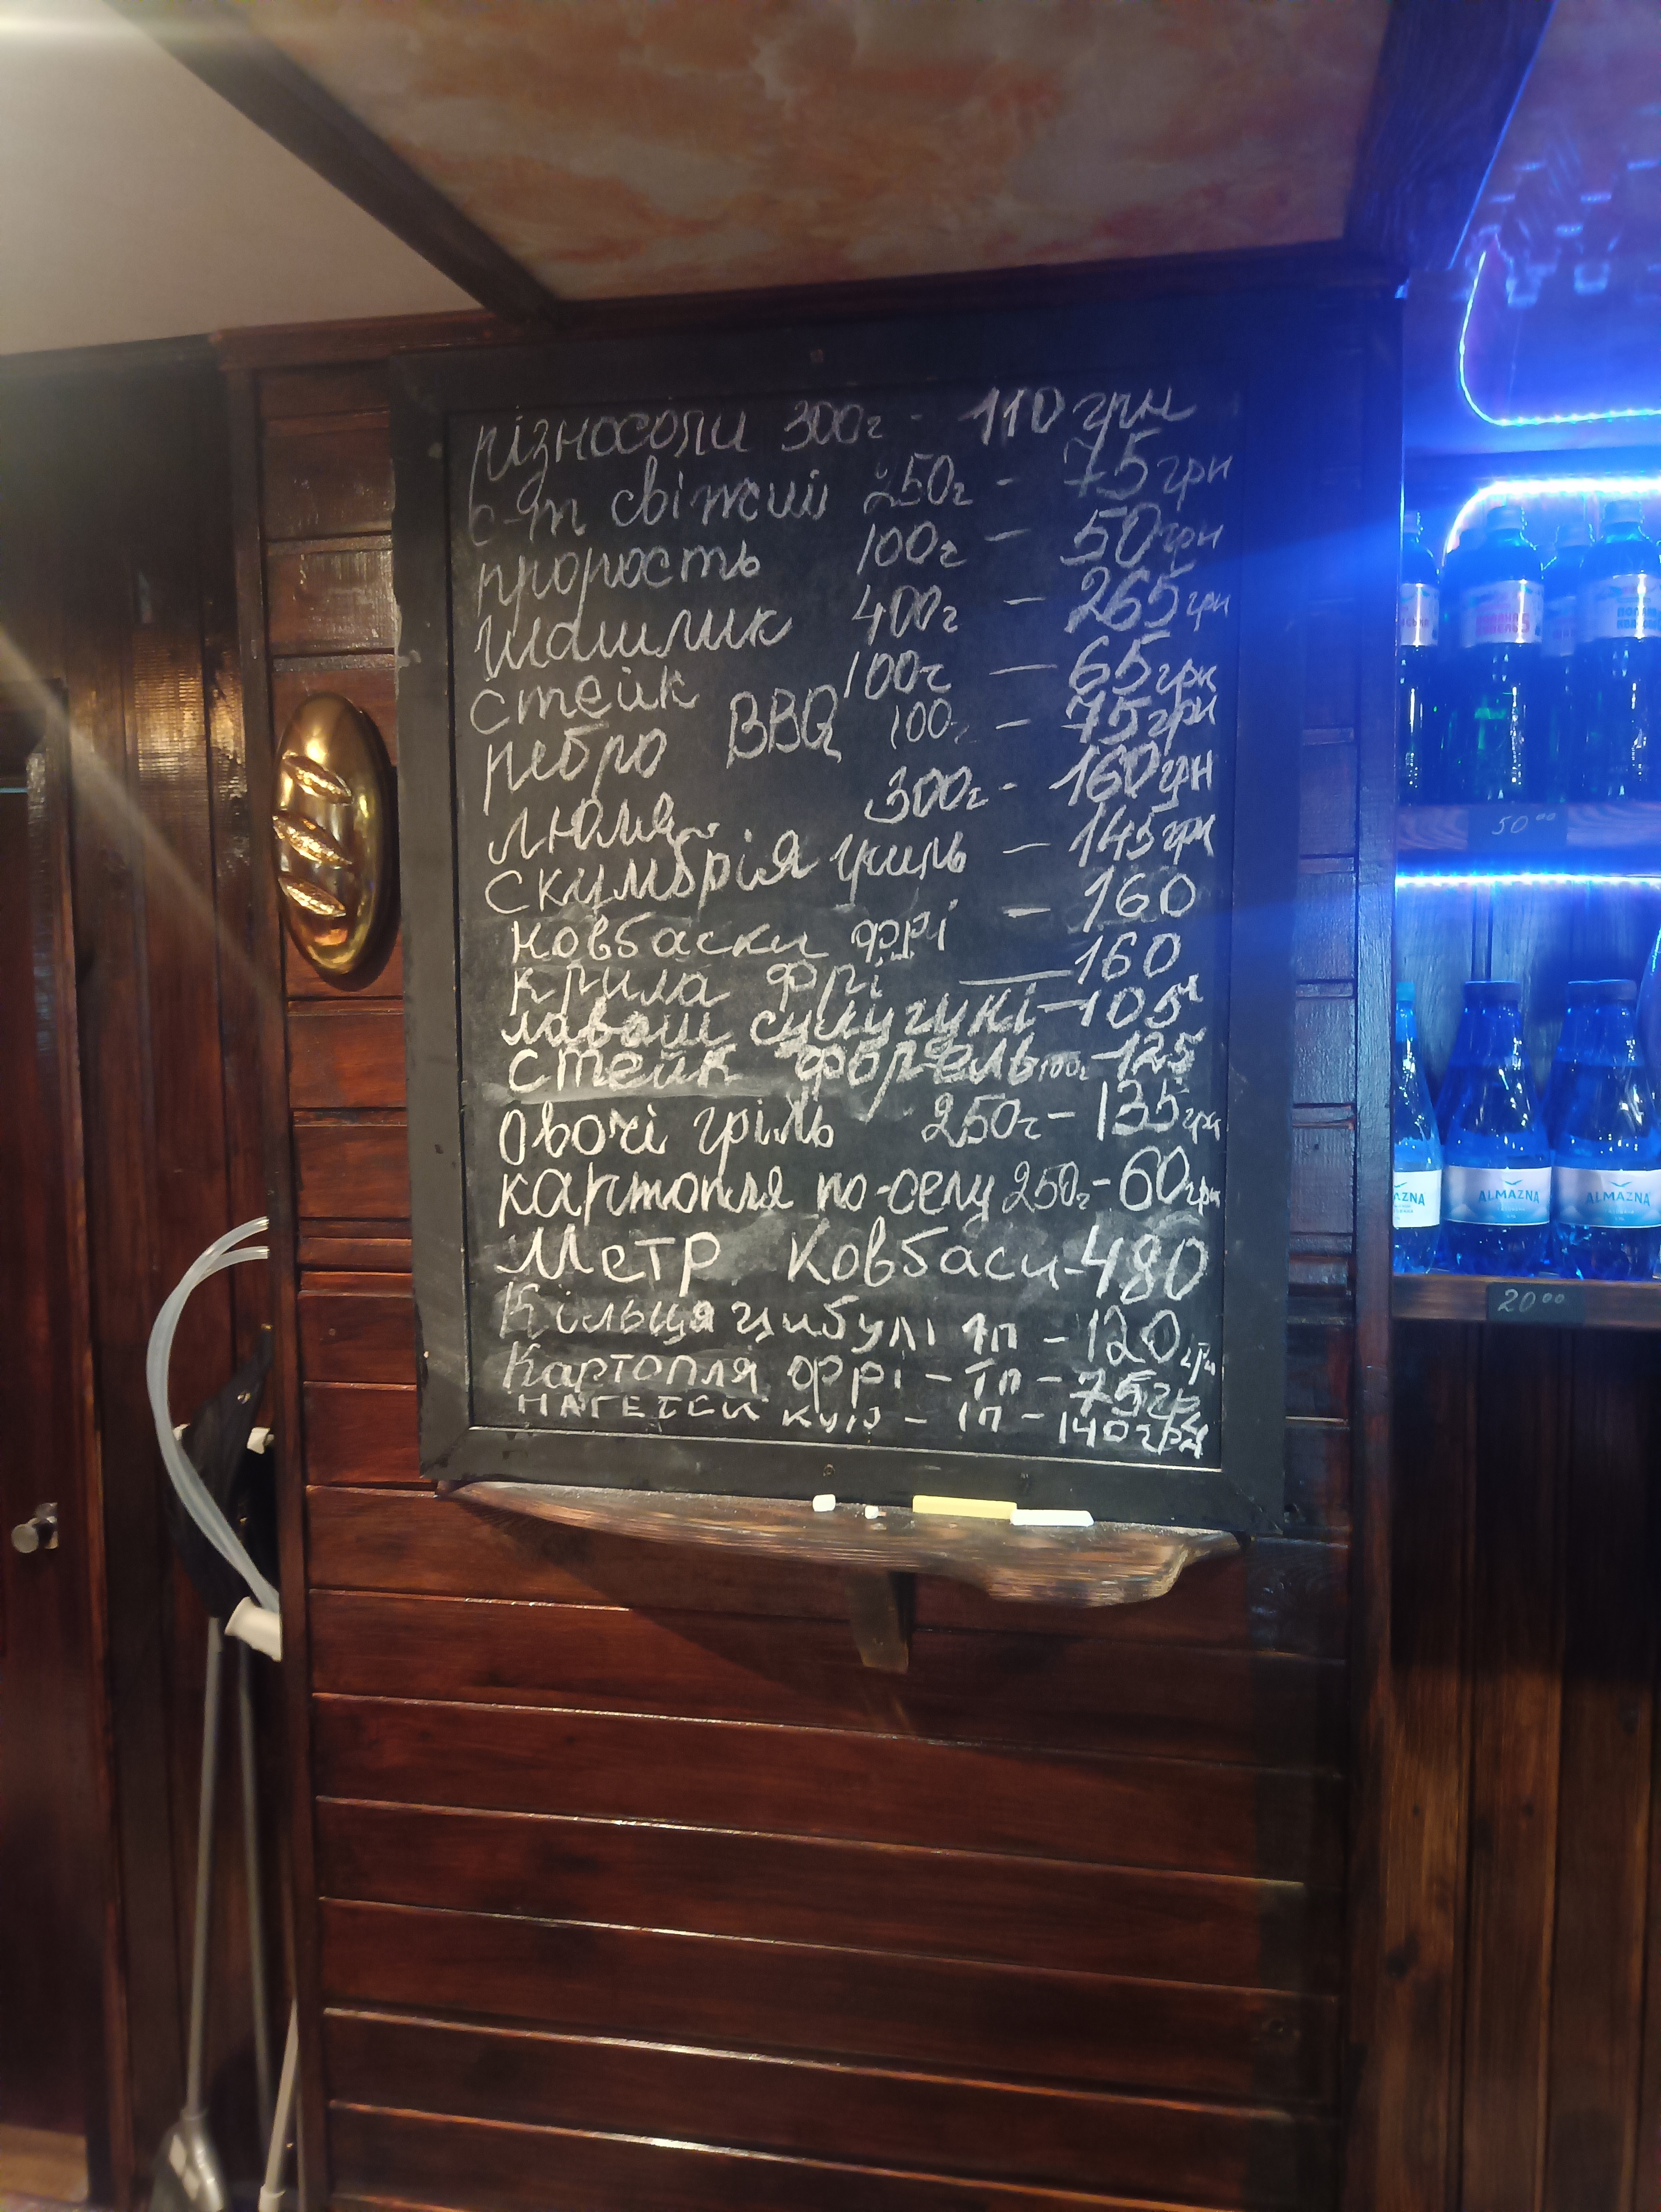 різносоли 300г - 110 грн
с-т свіжий 250г - 75 грн
прорость 100г - 50 грн
шашлик 400г - 265 грн
стейк 100г - 65 грн
ребро BBQ 100г - 75 грн
люля 300г - 160 грн
скумбрія гриль - 145 грн
ковбаски фрі - 160
крила фрі - 160
лаваш сулугуні - 105
стейк форель 100г - 125
овочі гріль 250г - 135 грн
картопля по-селу 250г - 60 грн
Метр Ковбаси - 480
Кільця цибулі 1п - 120 грн
Картопля фрі - 1п - 75 гр
нагетси кур - 1п - 140 грн
50 00
ALMAZNA
ALMAZNA
20 00